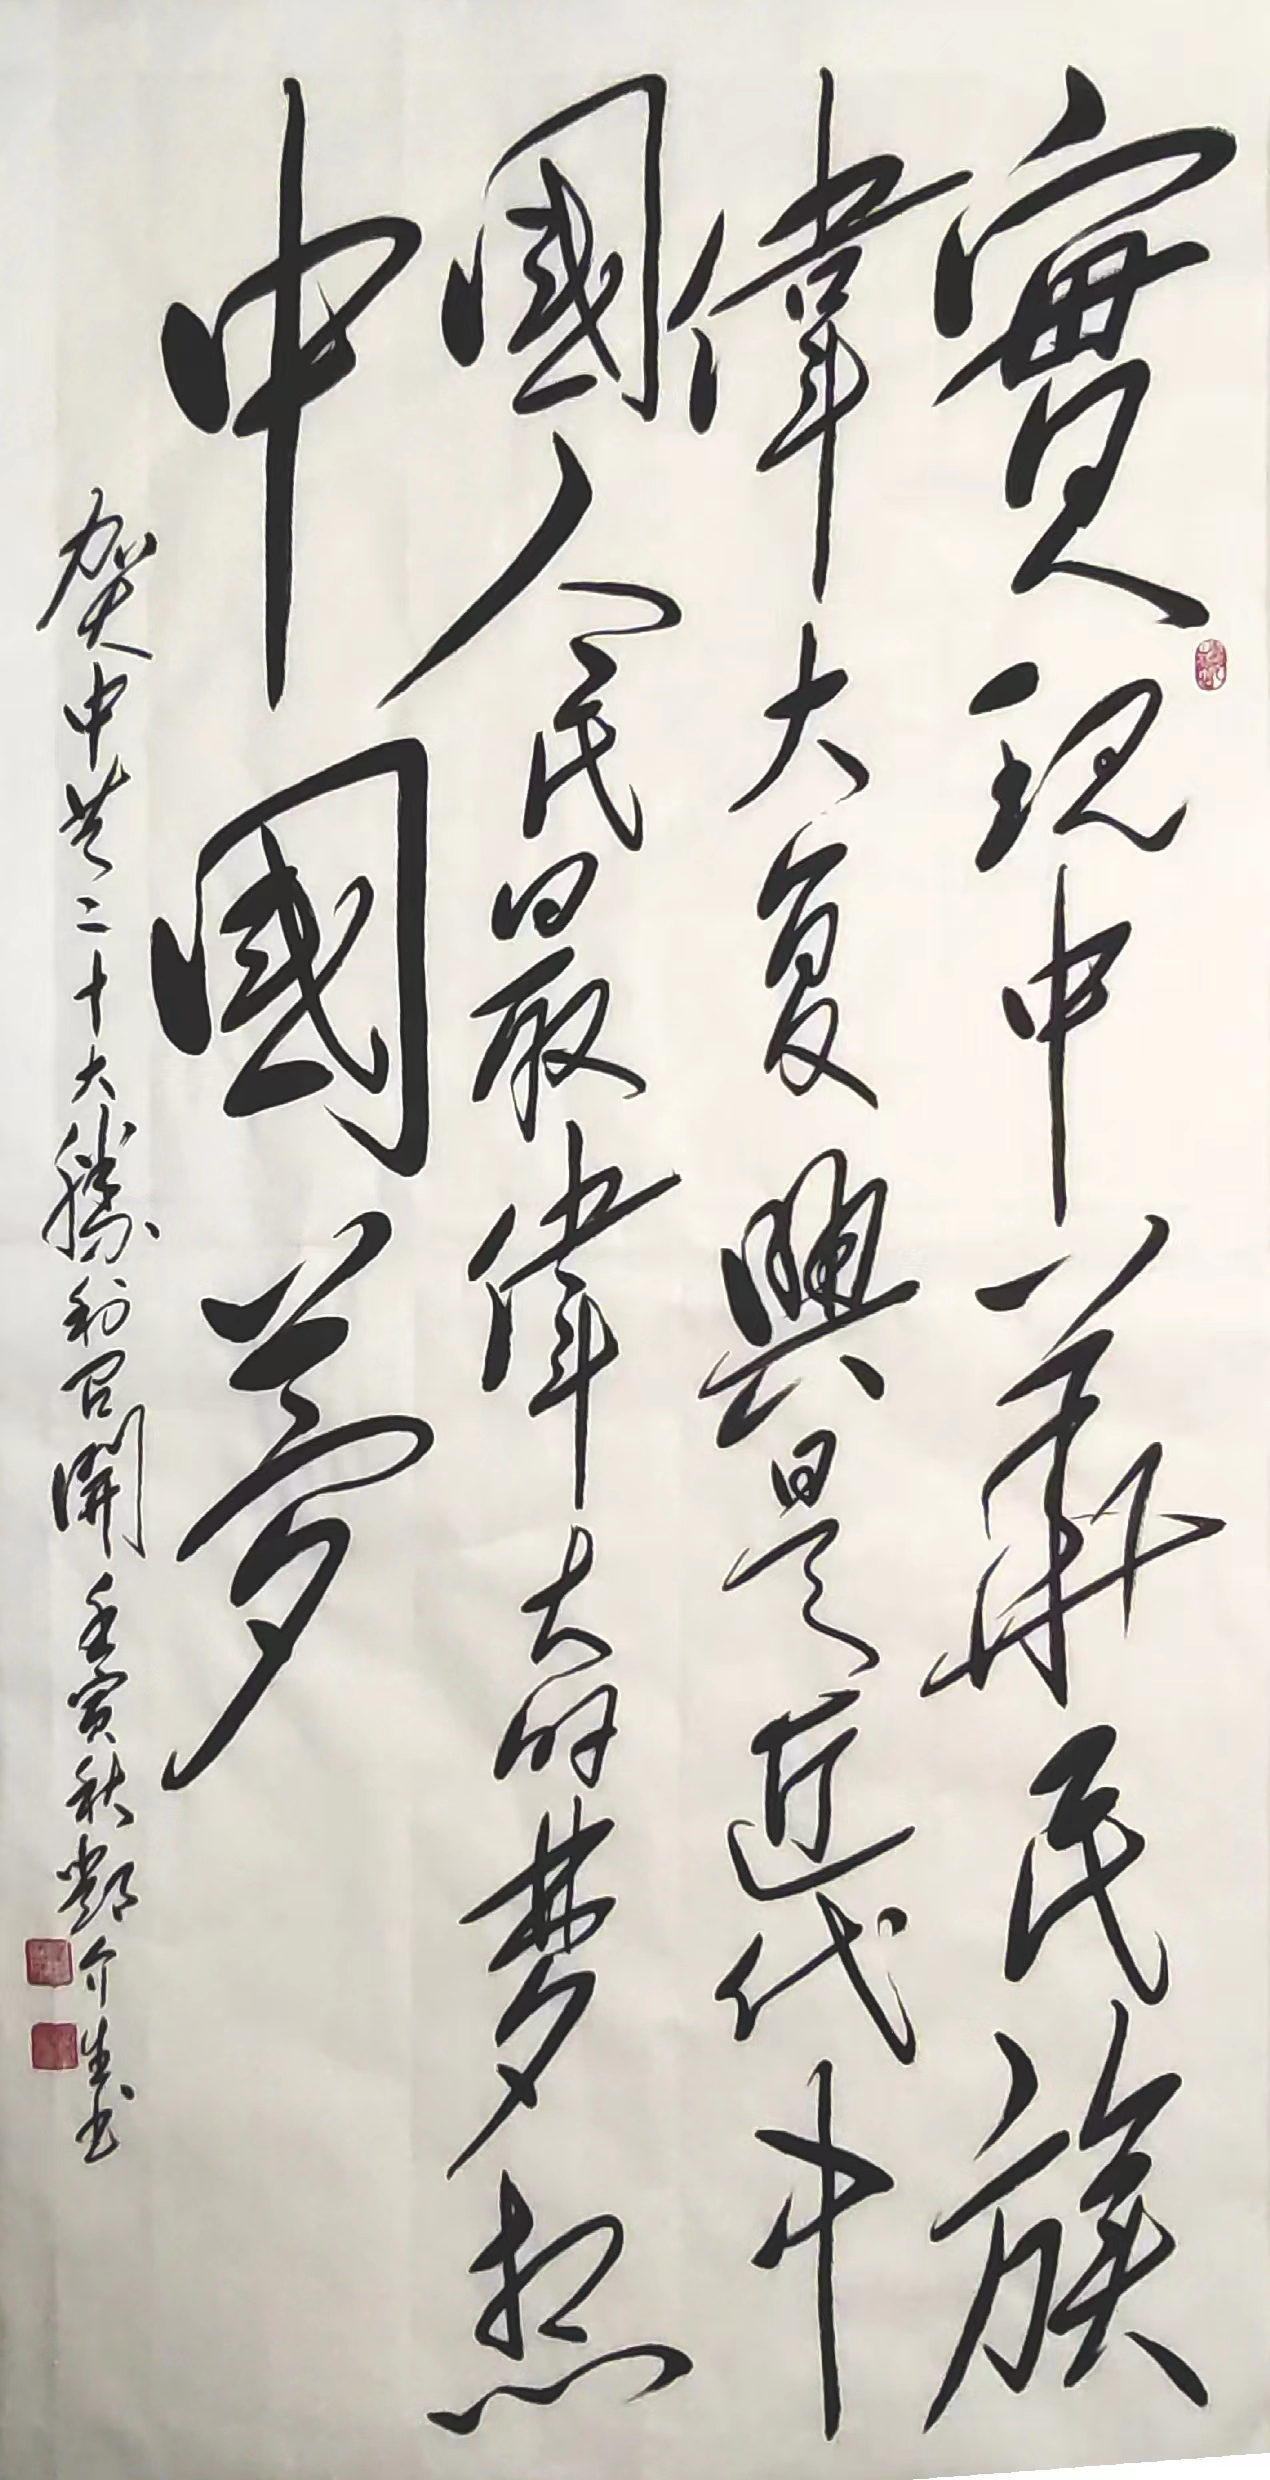 實現中華民族
偉大复興是近代中
國人民最偉大的梦想
中國夢
賀中共二十大勝利召開 壬寅秋 鄧介生书